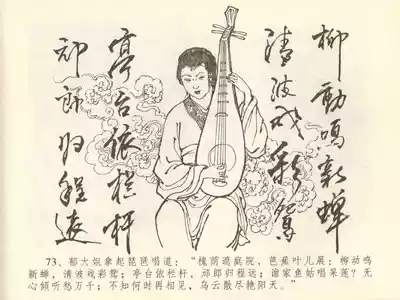 柳動鳴新蟬
清波戏彩鴛
亭台依栏杆
祁郎归程远
73. 郁大姐拿起琵琶唱道:“槐荫遮庭院,芭蕉叶儿展;柳动鸣
新蝉,清波戏彩鸳;亭台依栏杆,祁郎归程远;谁家鱼姑唱采莲?无
心倾听愁万千;不知何时再相见,乌云散尽艳阳天。”